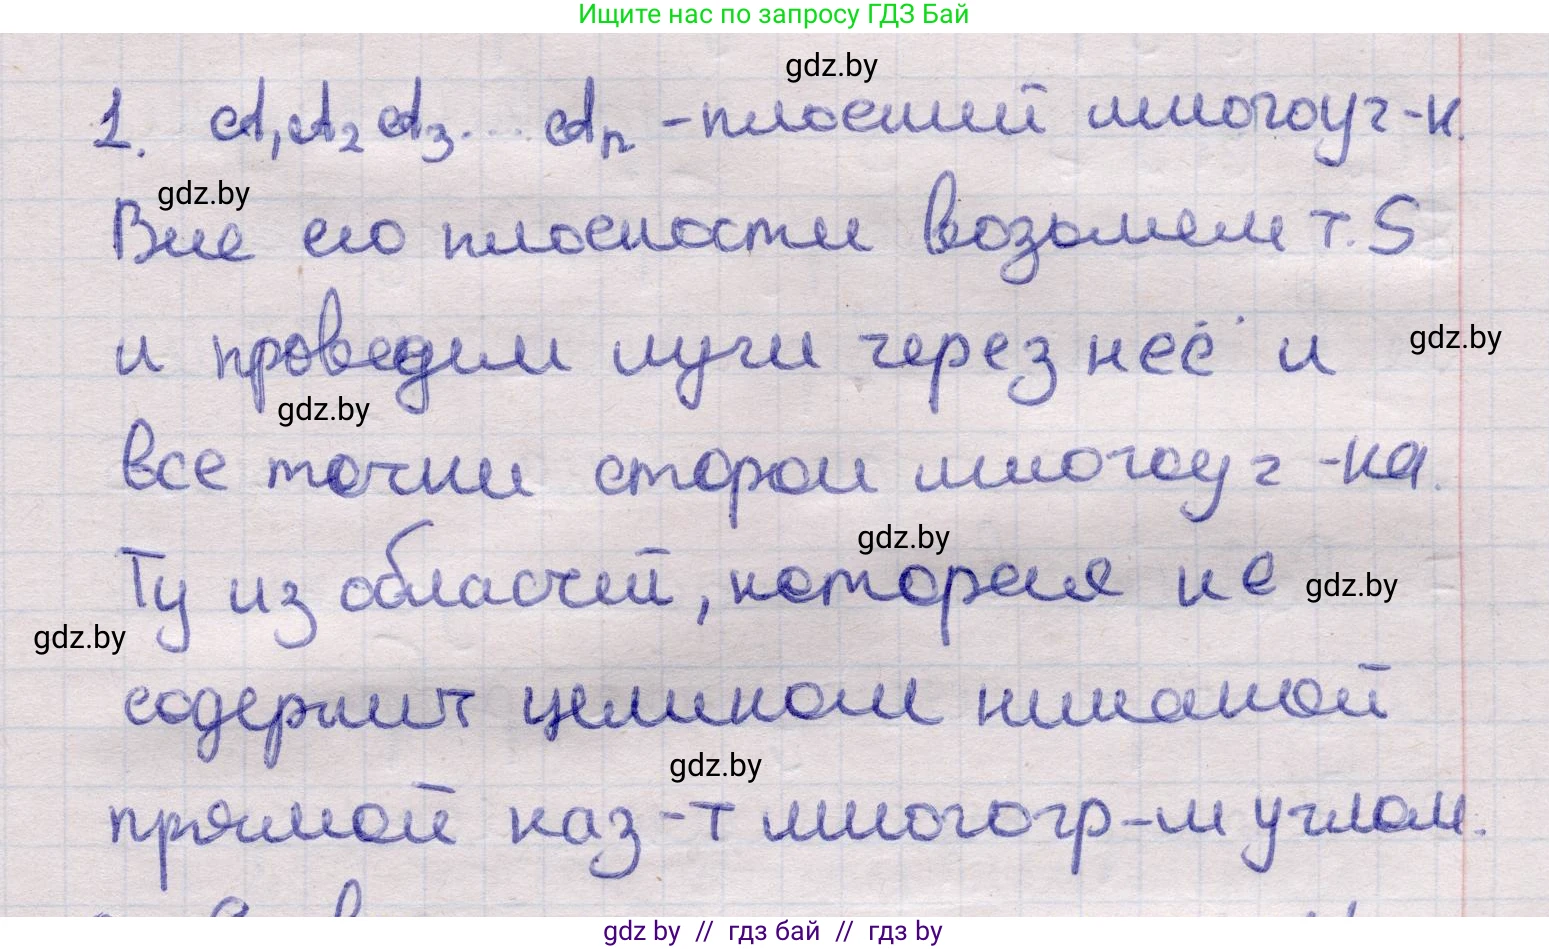 Ищите нас по запросу ГДЗ Бай
gdz.by
1. A₁A₂A₃... Aₙ - плоский многоуг-к.
gdz.by
Вне его плоскости возьмем т. S
и проведим лучи через неё и
gdz.by
gdz.by
все точки сторон многоуг-ка.
gdz.by
Ту из областей, которая не
gdz.by
gdz.by
содержит целиком никакой
gdz.by
прямой наз-т многогр-м углом.
gdz by // гдз бай // гдз by